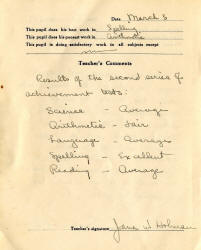 Date March 8
This pupil does his best work in Spelling
This pupil does his poorest work in Arithmetic
This pupil is doing satisfactory work in all subjects except
Teacher's Comments
Results of the second series of
achievement tests:
Science - Average
Arithmetic - Fair
Language - Average
Spelling - Excellent
Reading - Average
Teacher's signature Jane W Holman